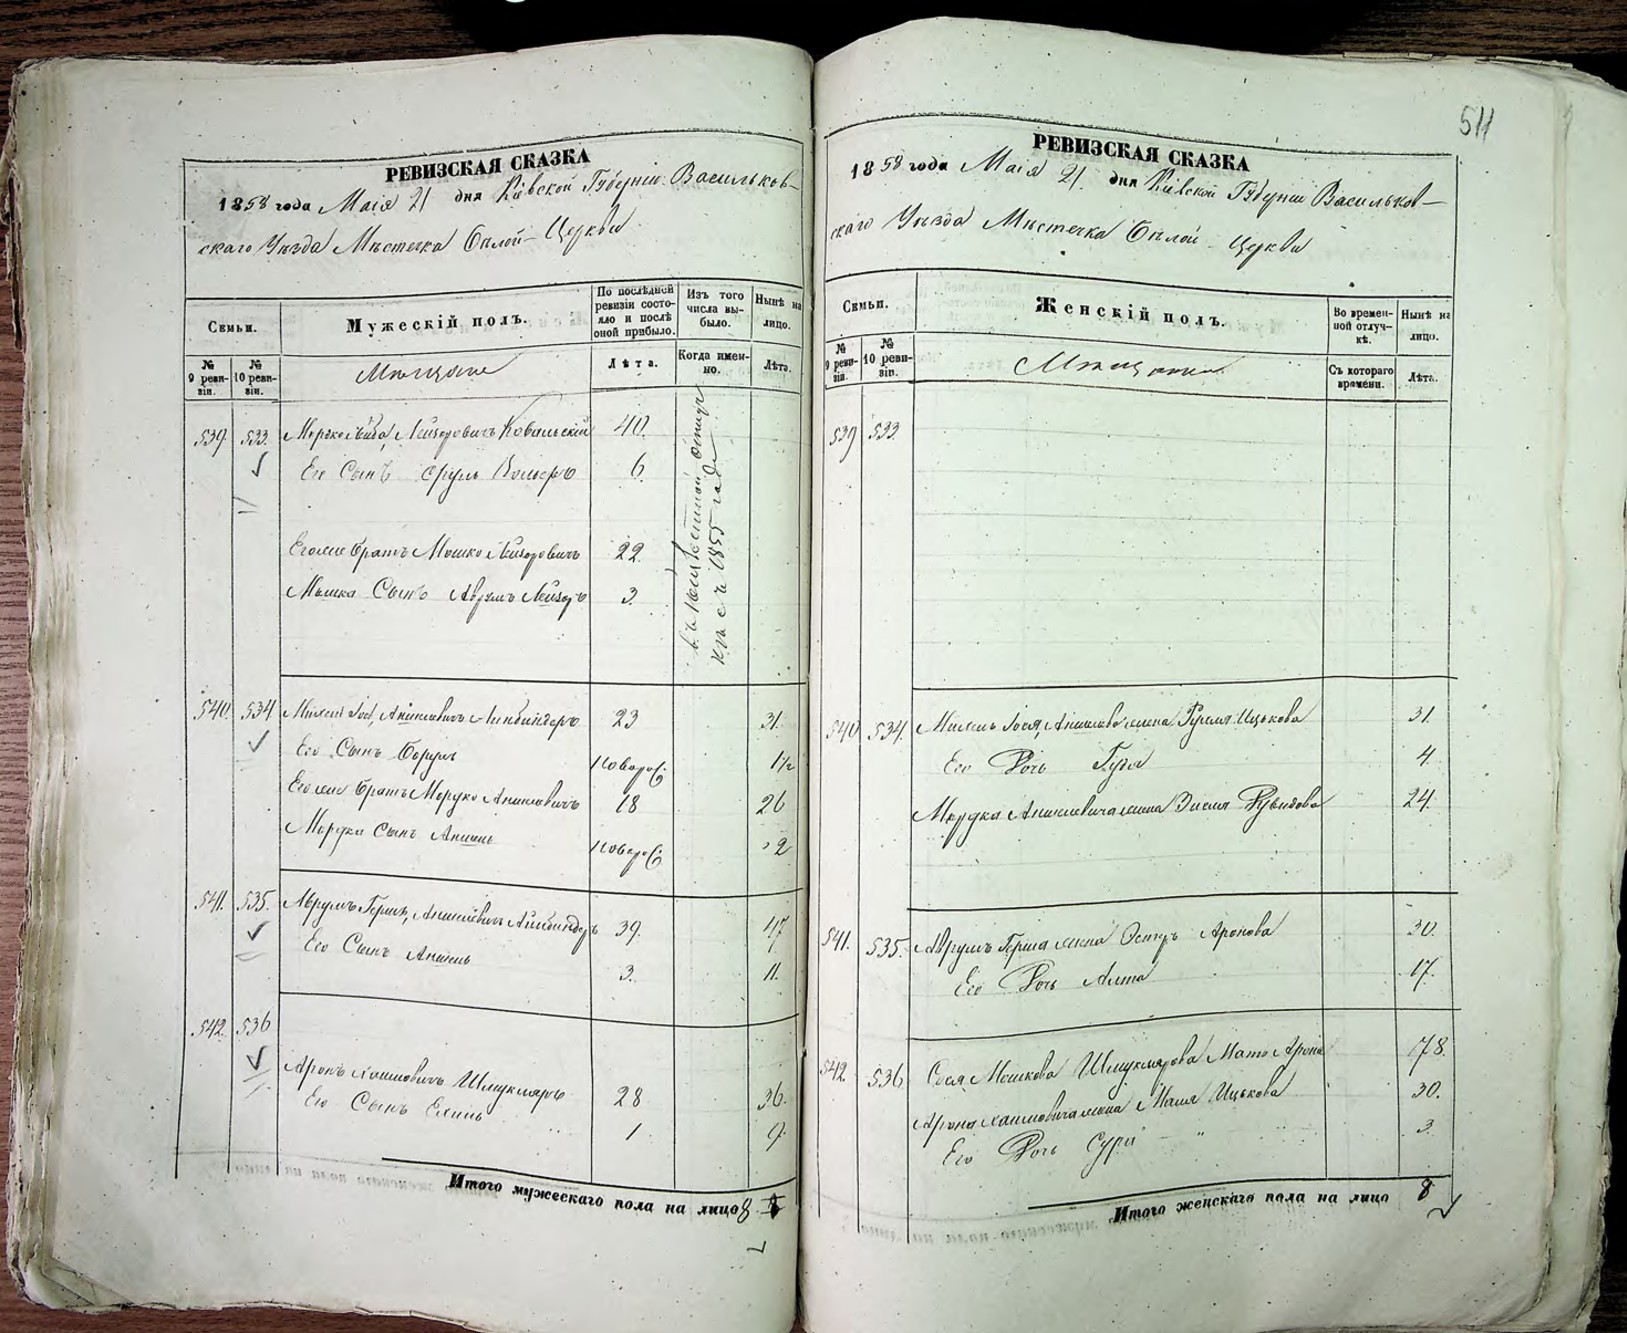 511
РЕВИЗСКАЯ СКАЗКА
1858 года Маія 21 дня Кіевской Губерніи Васильков-
скаго Уѣзда Мѣстечка Бѣлой-Церкви
Семьи.
Мужескій полъ.
По послѣдней ревизіи состояло и послѣ оной прибыло.
Изъ того числа выбыло.
Нынѣ на лицо.
№ 9 ревизіи.
№ 10 ревизіи.
Мѣщане
Лѣта.
Когда именно.
Лѣта.
539. 533. Лейзоровичъ Ковальскій 40.
Его Сынъ Сруль 6.
Его же братъ Мошко Лейзоровичъ 22.
Мошка Сынъ Аврумъ Лейзоръ 3.
въ 1855 году
540. 534 Аншелевичъ 23 31.
Его Сынъ Борухъ новорож. 1½
Его же братъ Мордко Аншелевичъ 18 26
Мордка Сынъ Аншель новорож. 2
541. 535. Аврумъ Гершъ, Аншелевичъ 39. 47
Его Сынъ Аншель 3. 11.
542. 536
Аронъ Хаимовичъ Шмукляръ 28 36.
Его Сынъ 1 9.
Итого мужескаго пола на лицо 8
РЕВИЗСКАЯ СКАЗКА
1858 года Маія 21. дня Кіевской Губерніи Васильков-
скаго Уѣзда Мѣстечка Бѣлой-Церкви
Семьи.
Женскій полъ.
Во временной отлучкѣ.
Нынѣ на лицо.
№ 9 ревизіи.
№ 10 ревизіи.
Мѣщанки
Съ котораго времени.
Лѣта.
539 533.
540 534. жена Ицькова 31.
Его Дочь 4.
Мордка Аншелевича жена 24.
541. 535. Аврумъ Герша жена Эстеръ Аронова 30.
Его Дочь Алта 17.
542 536 Сося Мошкова Шмуклярова Мать Арона 78.
Арона Хаимовича жена Ицькова 30.
Его Дочь Сура 3.
Итого женскаго пола на лицо 8